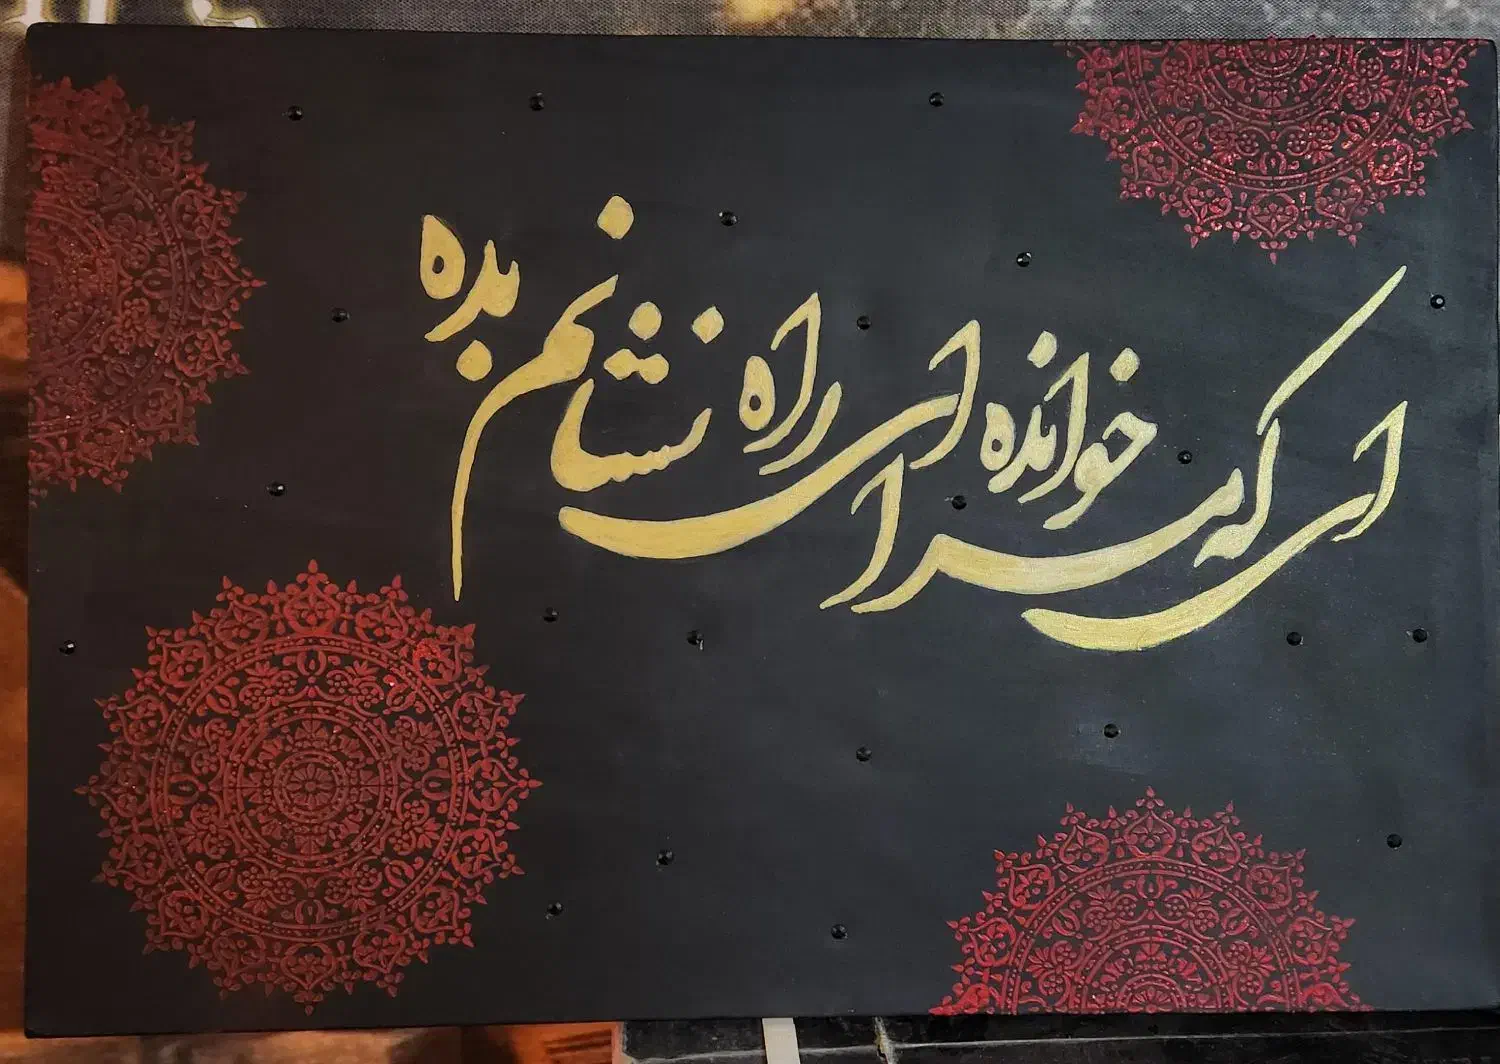 ای که مرا خوانده ای راه نشانم بده